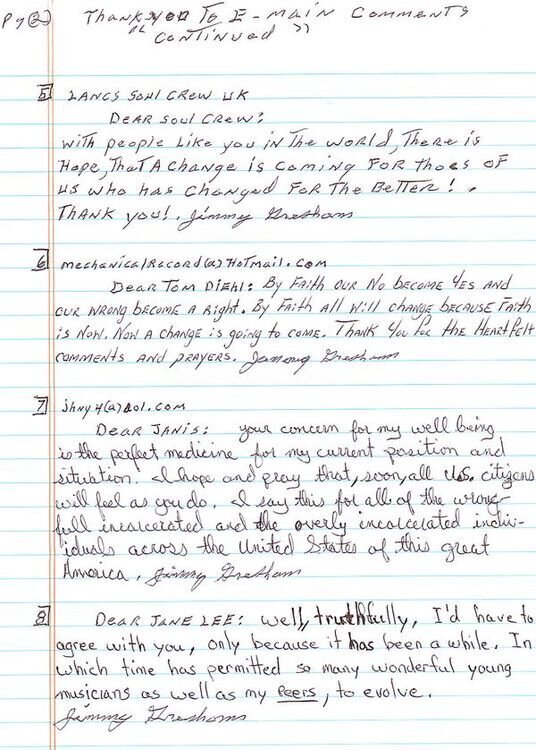 Pg(2) Thank you To E-main Comments
"Continued"
5 Lancs Soul Crew UK
Dear Soul Crew:
With people like you in the world, There is
Hope, That A Change is coming For thoes of
us who has changed For The Better!.
Thank you!. Jimmy Gresham
6 mechanicalrecord(a)Hotmail.com
Dear Tom Diehl: By Faith our No become yes and
our wrong become a right. By Faith all will change because Faith
is Now. Now a change is going to come. Thank you for the Heartfelt
comments and prayers. Jimmy Gresham
7 jhny4(a)aol.com
Dear Janis: your concern for my well being
is the perfect medicine for my current position and
situation. I hope and pray that, soon, all U.S. citizens
will feel as you do. I say this for all of the wrong-
full incarcerated and the overly incarcerated indivi-
iduals across the United States of this great
America. Jimmy Gresham
8 Dear Jane Lee: Well, truthfully, I'd have to
agree with you, only because it has been a while. In
which time has permitted so many wonderful young
musicians as well as my Peers, to evolve.
Jimmy Gresham